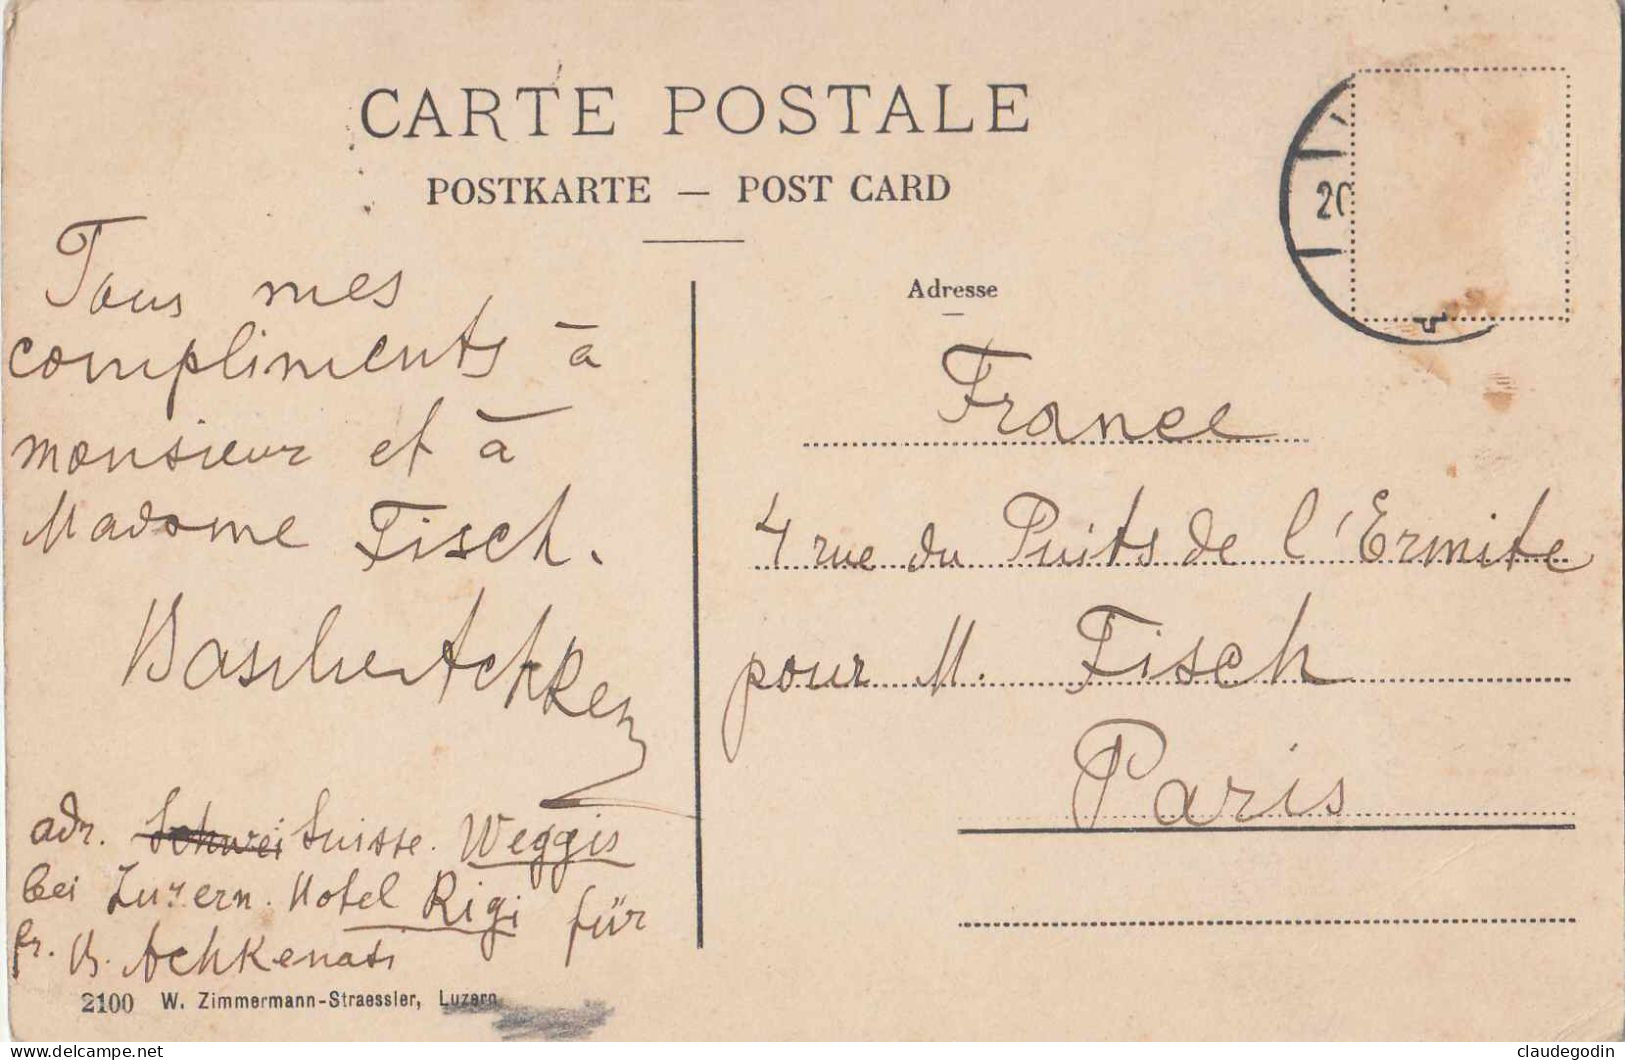 CARTE POSTALE
POSTKARTE — POST CARD
Tous mes
compliments à
monsieur et à
Madame Fisch.
adr. Schwei Suisse. Weggis
bei Luzern. Hotel Rigi für
fr. B. Achkenasi
2100 W. Zimmermann-Straessler, Luzern
20
Adresse
France
4 rue du Puits de l'Ermite
pour M. Fisch
Paris
delcampe.net
claudegodin